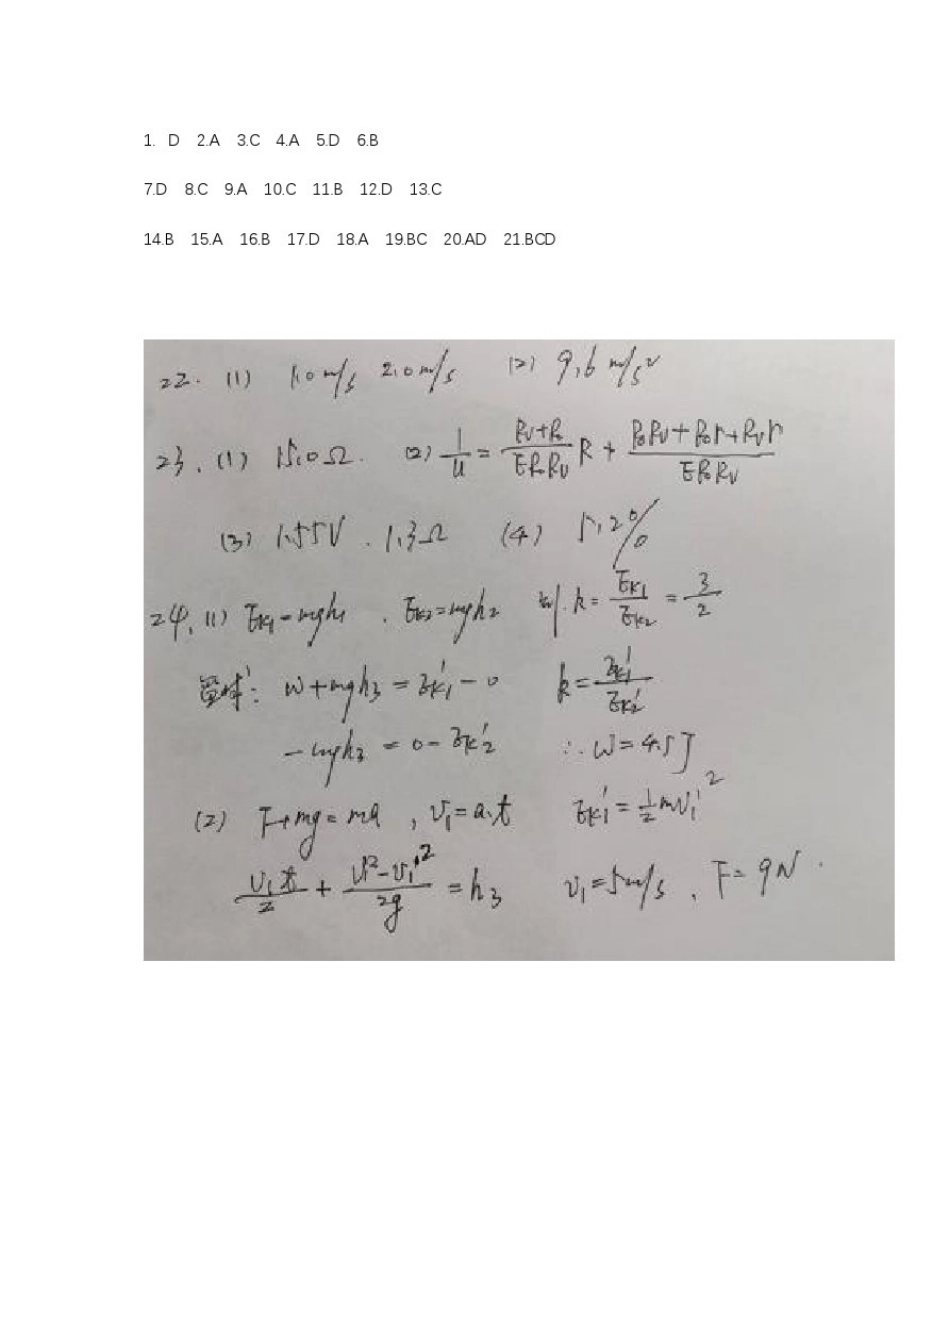 1. D 2.A 3.C 4.A 5.D 6.B
7.D 8.C 9.A 10.C 11.B 12.D 13.C
14.B 15.A 16.B 17.D 18.A 19.BC 20.AD 21.BCD
22. (1) 1.0 m/s 2.0 m/s (2) 9.6 m/s²
23. (1) 15.0Ω. (2) 1/U = (Rv+R₀)/(ER₀Rv) R + (R₀Rv+R₀r+Rvr)/(ER₀Rv)
(3) 1.55V . 1.3Ω (4) 5.2%
24. (1) Ek1=mgh1 . Ek2=mgh2 k = Ek1/Ek2 = 3/2
W+mgh3 = Ek1′-0 k = Ek1′/Ek2′
-mgh3 = 0-Ek2′ ∴ W=4.5J
(2) F+mg=ma , v1=a·t Ek1′ = ½mv1′²
v1t/2 + (v1′²-v1²)/2g = h3 v1=5m/s . F=9N .